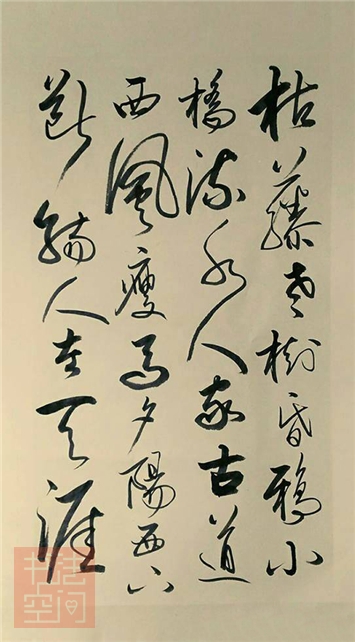 枯藤老樹昏鴉小
橋流水人家古道
西風瘦馬夕陽西下
斷腸人在天涯
书法
空间